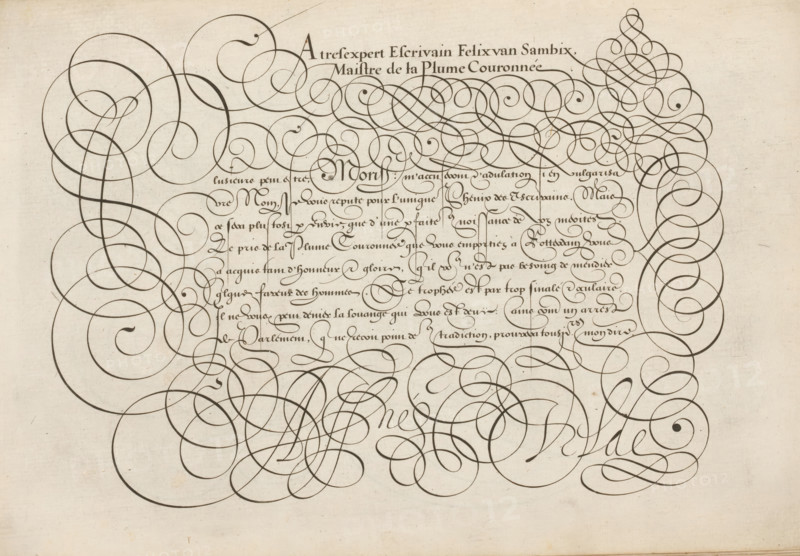 A tresexpert Escrivain Felix van Sambix.
Maistre de la Plume Couronnée
lusieurs peut estre, Monsr: m'accuseront d'adulation, si en vulgarisa
vre Nom, Je vous repute pour l'unique Phenix des Escrivains. Mais
ce sera plustost p envie, que d'une pfaite noissance de voz merites
Le pris de la Plume Couronnee que vous emportiez a Rotterdam, vous
a acquis tant d'honneur & gloire, n'est pas besoing de mendier
qlque faveur des hommes. Ce trophée est par trop & oculaire
Il ne vous peut denier la louange qui vous est deue. ains com un arrest
de Parlement, q ne reçoit point de tradiction, prouvera tousjrs mon dire
Velde